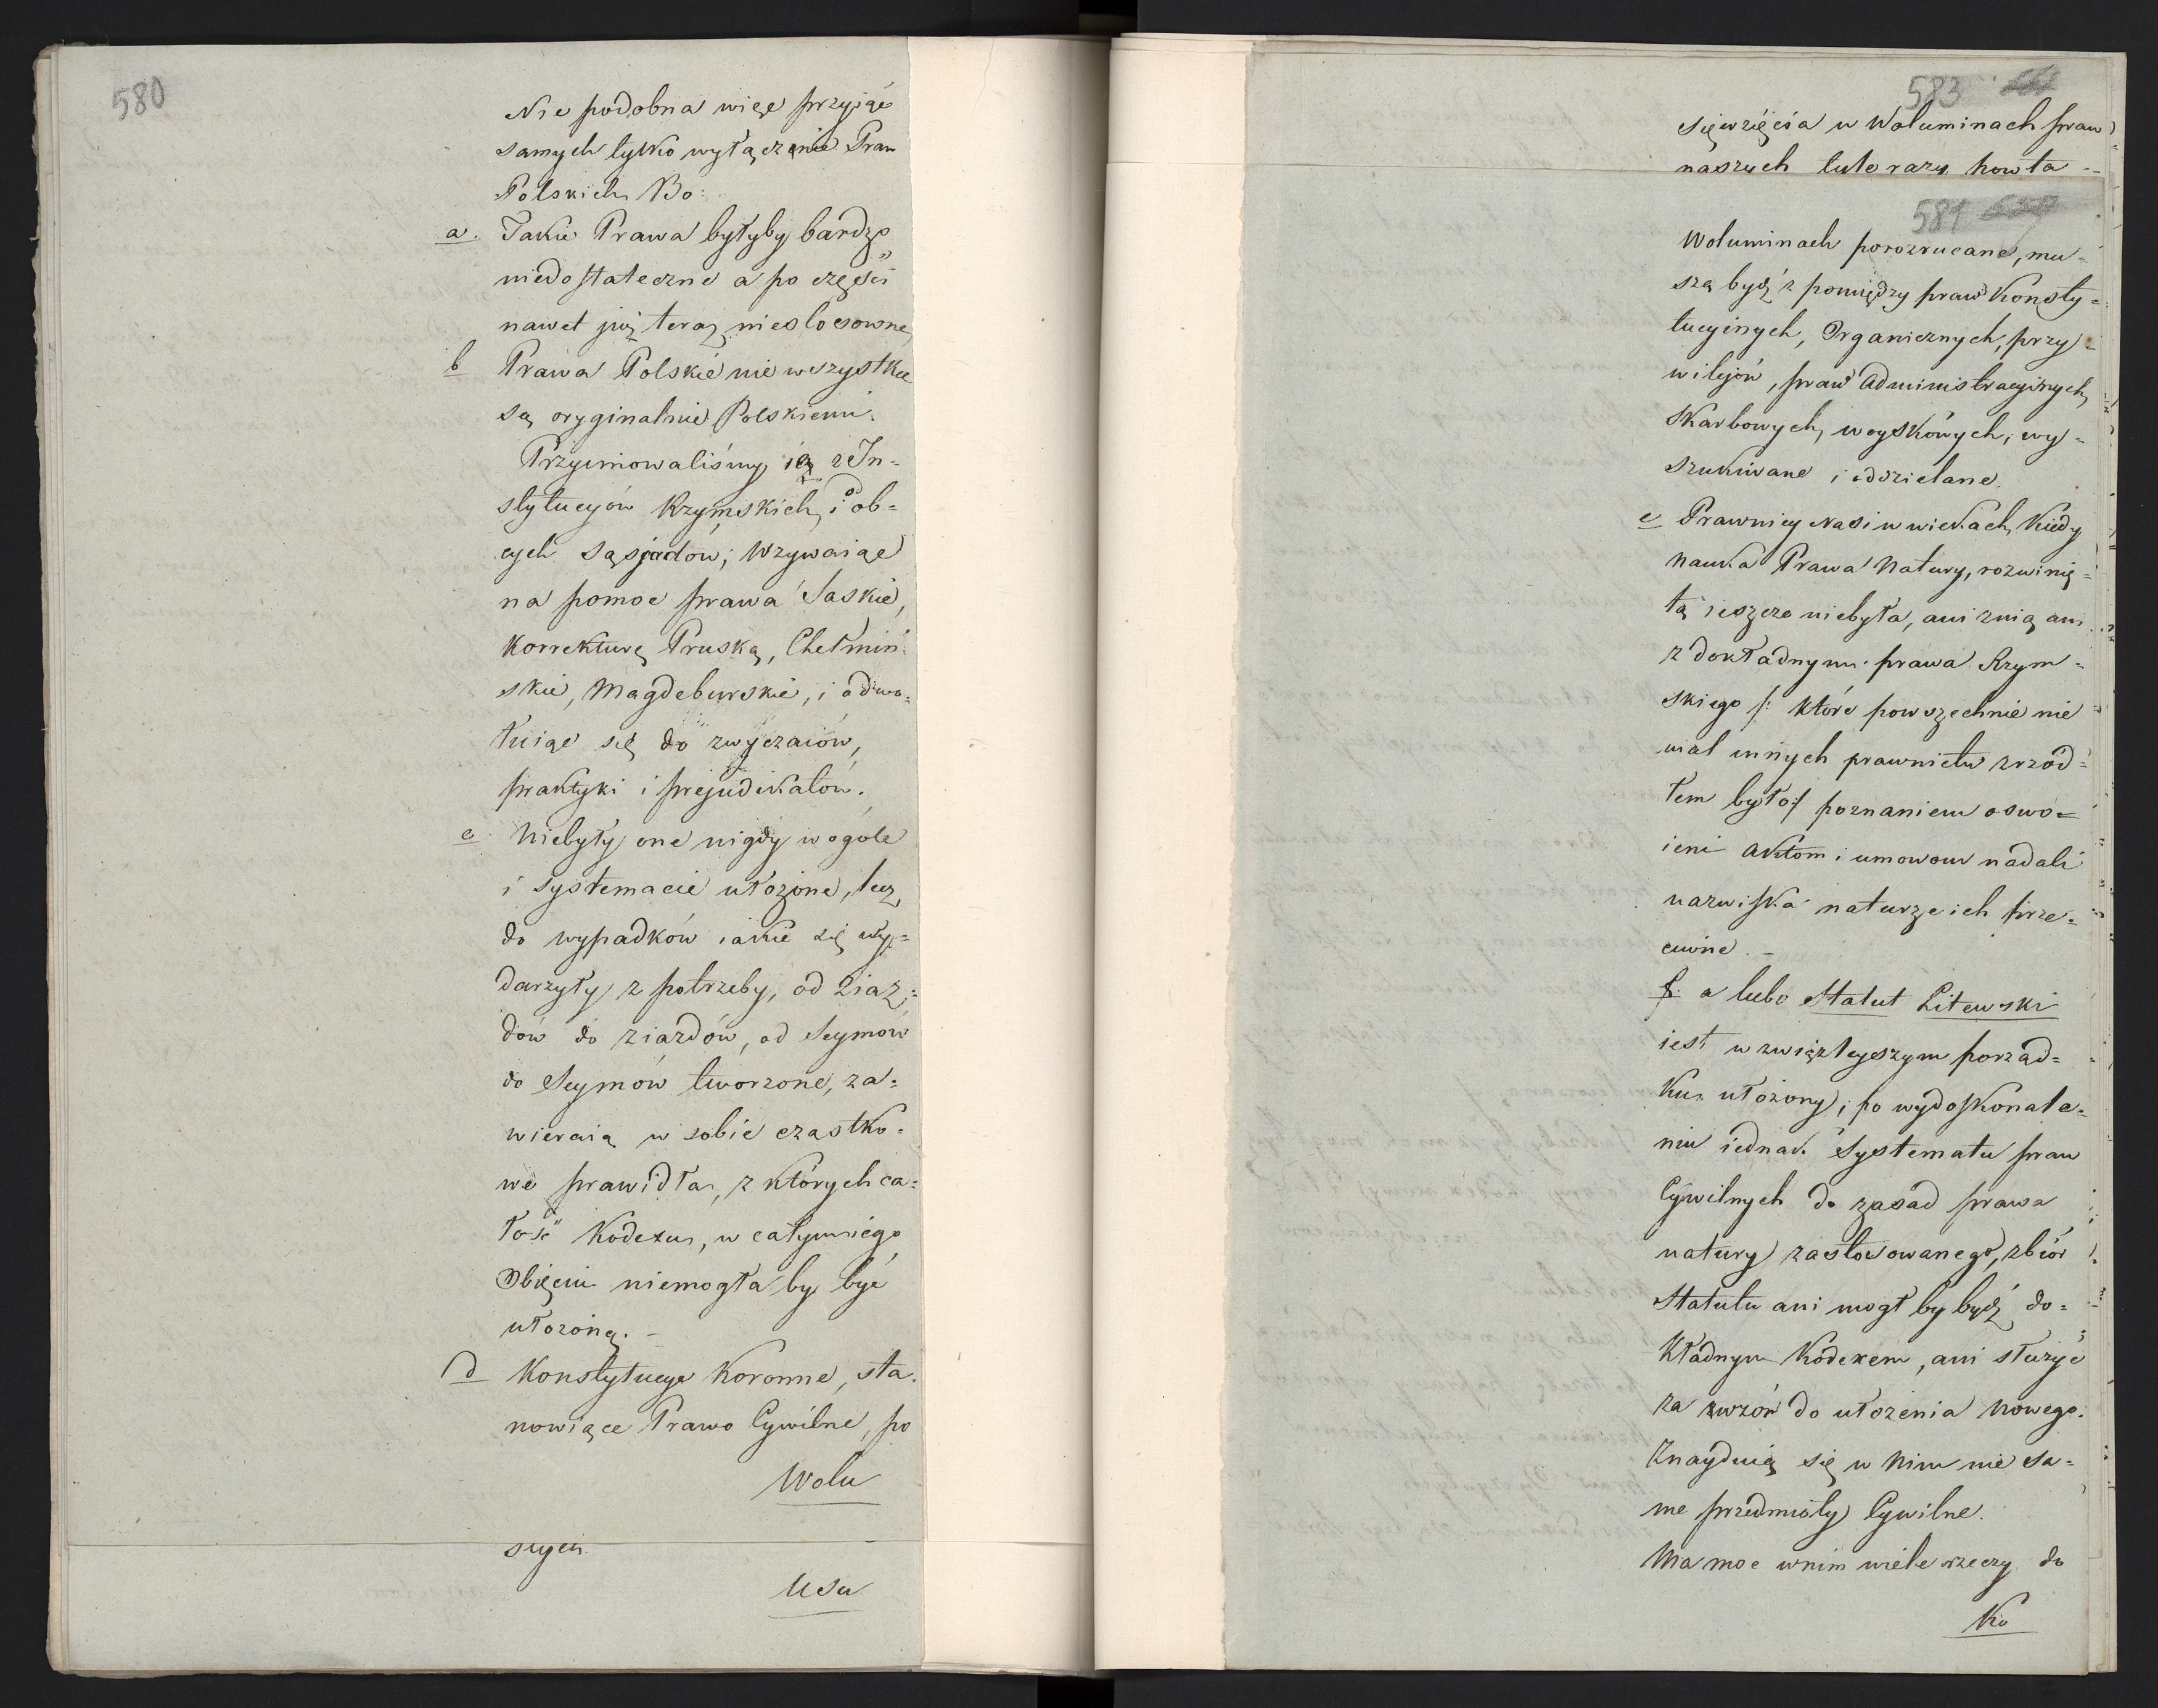 580
Nie podobna więc przyjąć
samych tylko wyłącznie Praw
Polskich Bo:
a. Takie Prawa byłyby bardzo
niedostateczne a po części
nawet już teraz niestosowne
b Prawa Polskie nie wszystkie
są oryginalnie Polskiemi.
Przyimowaliśmy ie z In=
stytucyów Rzymskich, i od ob=
cych Sąsjadów; Wzywaiąc
na pomoc prawa Saskie,
Korrekturę Pruską, Chełmiń=
skie, Magdeburskie, i odwo=
łuiąc się do zwyczaiów,
praktyki i prejudikatów.
c Niebyły one nigdy w ogóle
i systemacie ułożone, lecz
do wypadków iakie się wy=
darzyły z potrzeby, od Ziaz=
dów do ziazdów, od Seymów
do Seymów tworzone, za=
wieraią w sobie cząstko=
we prawidła, z których ca=
łość Kodexu, w całym iego
Obięciu niemogła by być
ułożoną. –
d Konstytucye Koronne, sta=
nowiące Prawo Cywilne, po
Wolu
Usu
583
Woluminach praw
naszych
581
Woluminach porozrucane, mu=
szą bydź z pomiędzy praw Konsty=
tucyinych, Organicznych, przy=
wilejów, praw Administracyinych,
Skarbowych, woyskowych, wy=
szukiwane i oddzielane.
e Prawnicy Nasi w wiekach, kiedy
nauka Prawa Natury, rozwinię=
tą ieszcze niebyła, ani z nią ani
z dokładnym prawa Rzym=
skiego /: które powszechnie nie
mal innych prawnictw zrzód=
łem było :/ poznaniem oswo=
ieni Aktom i umowom nadali
nazwiska naturze ich prze=
ciwne. –
f. a lubo Statut Litewski
iest w zwięzleyszym porząd=
ku ułożony; po wydoskonale=
niu iednak Systematu praw
Cywilnych do zasad prawa
natury zastosowanego, zbiór
Statutu ani mogł by bydź do=
kładnym Kodexem, ani służyć
za wzór do ułożenia nowego.
Znayduią się w Nim nie sa=
me przedmioty Cywilne.
Ma moc w nim wiele rzeczy do
Ko